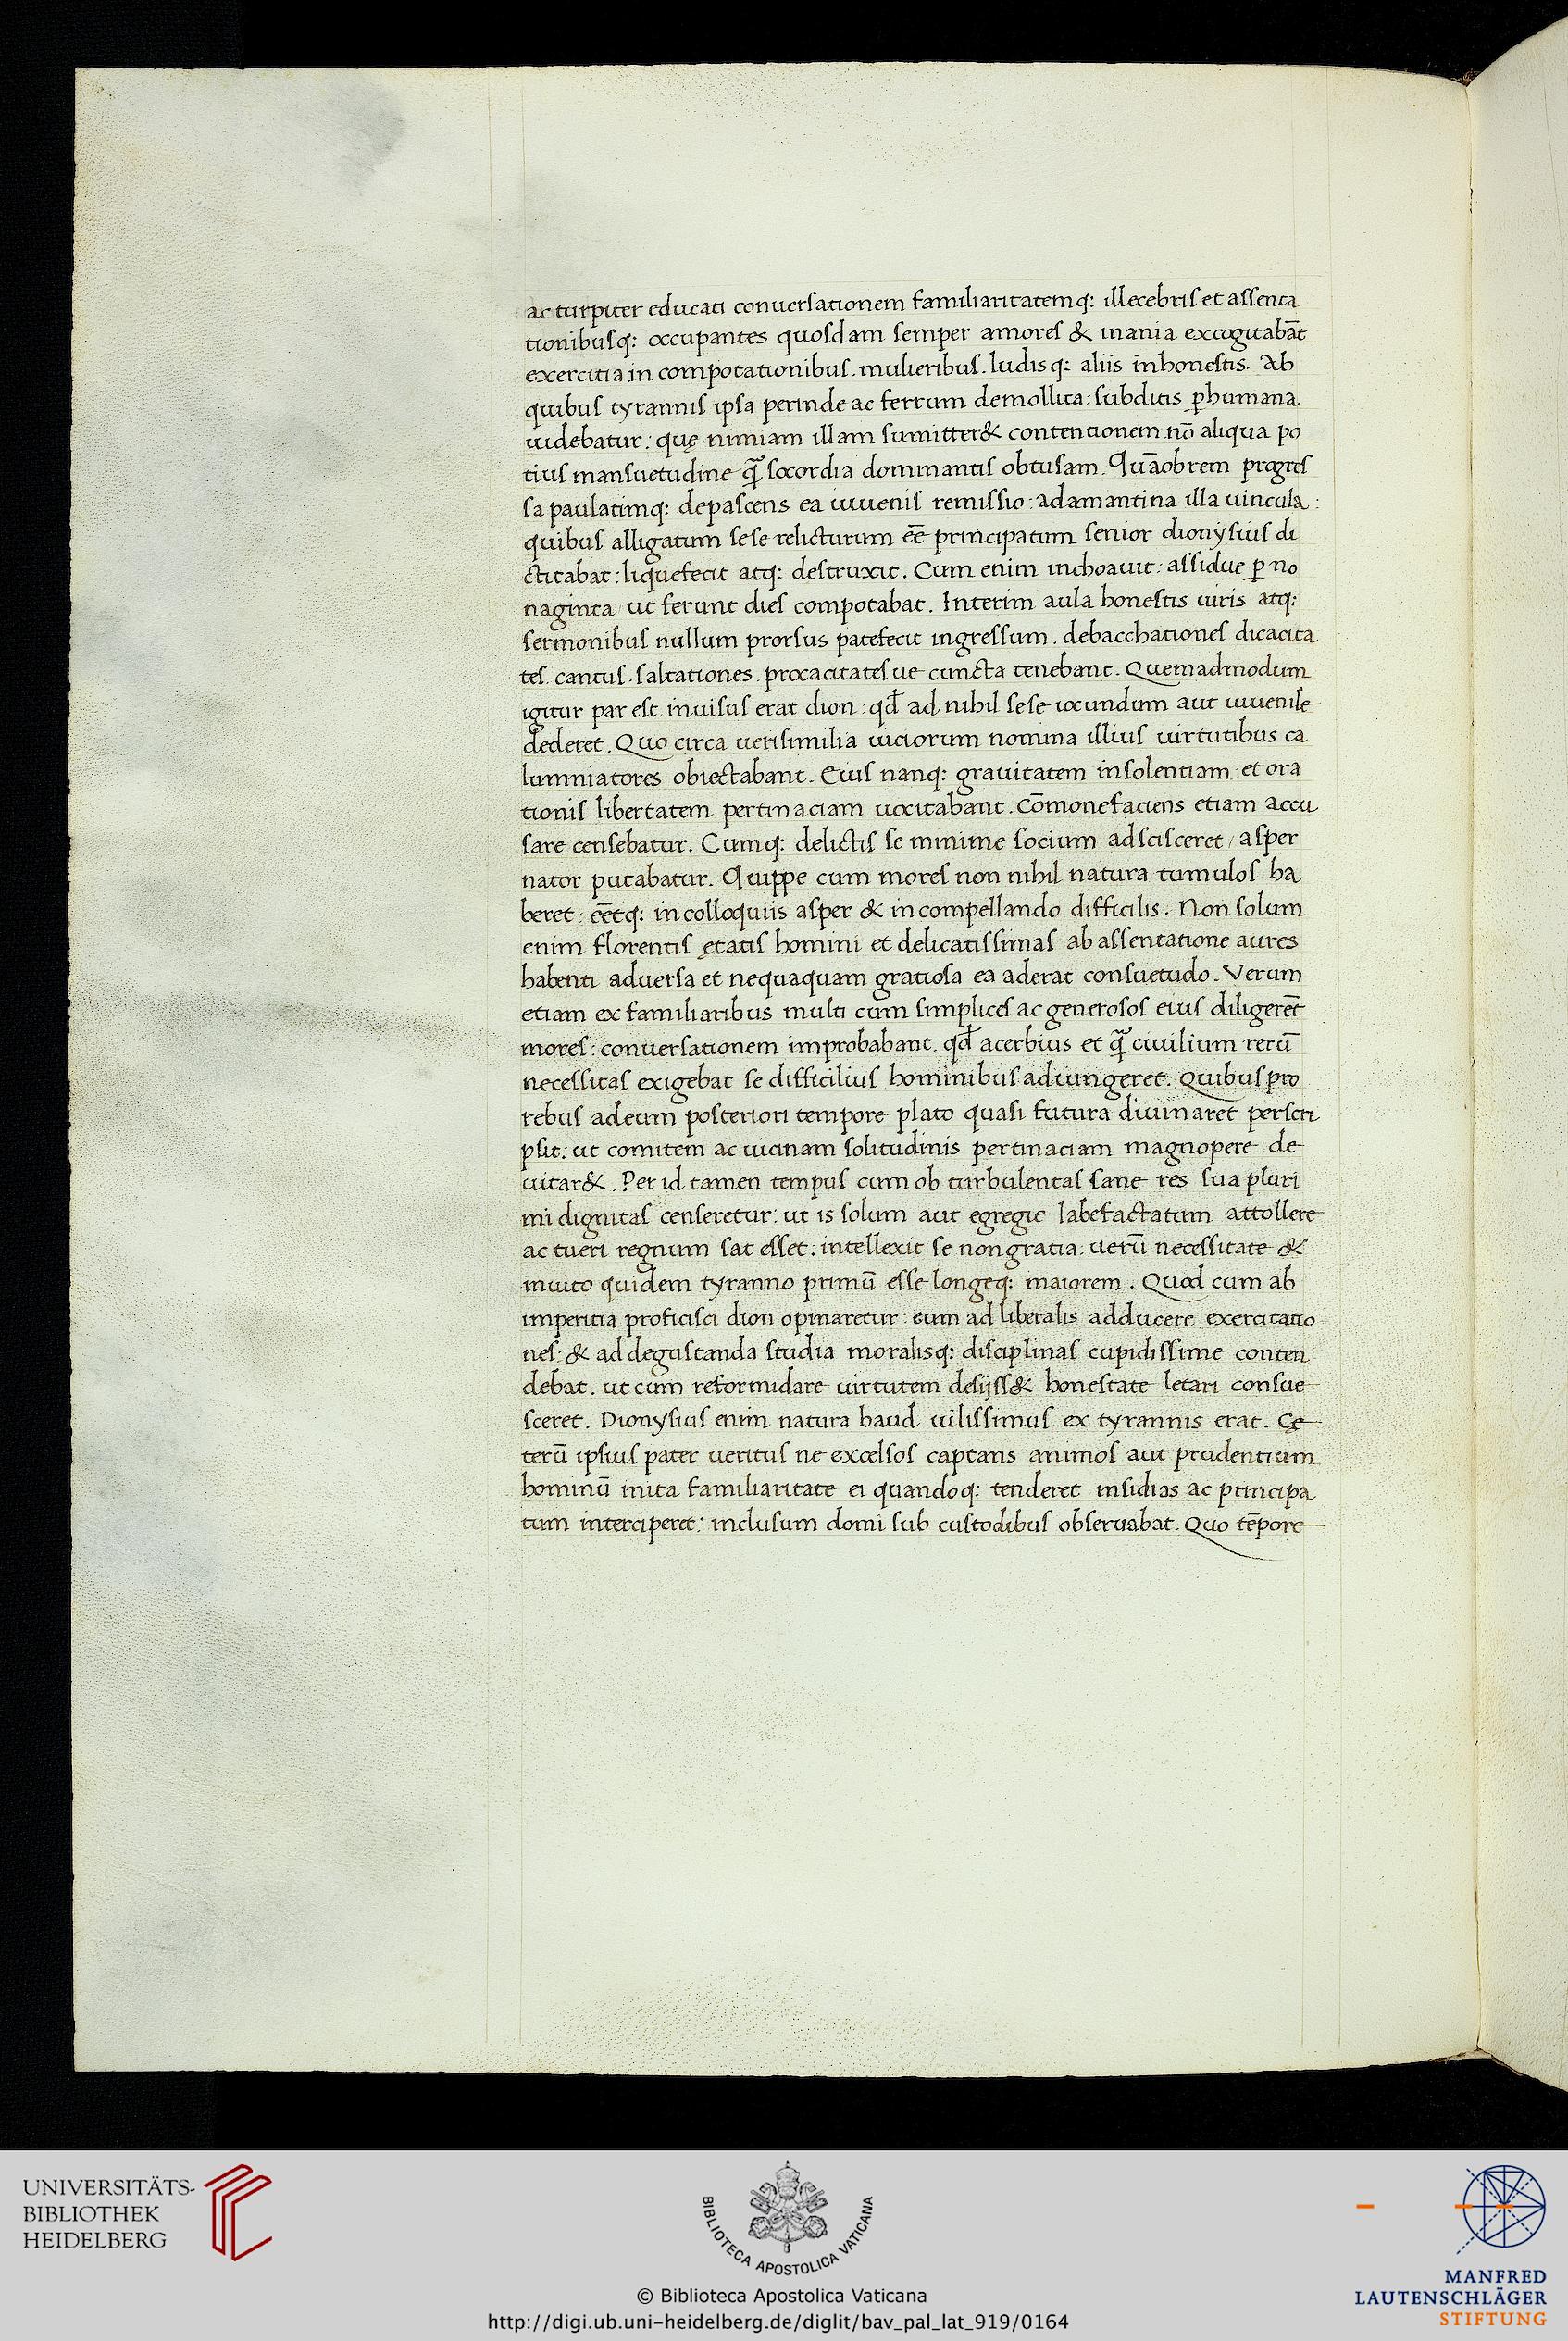 ac turpiter educati conuersationem familiaritatemq: illecebris et assenta
tionibusq: occupantes quosdam semper amores & inania excogitabāt
exercitia in compotationibus. mulieribus. ludisq: aliis inhonestis. Ab
quibus tyrannis ipsa perinde ac ferrum demollita: subditis ꝑhumana
uidebatur: quę nimiam illam sumitter& contentionem nō aliqua po
tius mansuetudine q̄ socordia dominantis obtusam. Quāobrem progres
sa paulatimq: depascens ea iuuenis remissio: adamantina illa uincula:
quibus alligatum sese relicturum eē principatum senior dionysius di
ctitabat: liquefecit atq: destruxit. Cum enim inchoauit: assidue ꝑ no
naginta ut ferunt dies compotabat. Interim aula honestis uiris atq:
sermonibus nullum prorsus patefecit ingressum. debacchationes dicacita
tes. cantus. saltationes. procacitates ue cuncta tenebant. Quemadmodum
igitur par est inuisus erat dion: qđ ad nihil sese iocundum aut iuuenile
dederet. Quo circa uerisimilia uiciorum nomina illius uirtutibus ca
lumniatores obiectabant. Eius nanq: grauitatem insolentiam: et ora
tionis libertatem pertinaciam uocitabant. Cōmonefaciens etiam accu
sare censebatur. Cumq: delictis se minime socium adscisceret / asper
nator putabatur. Quippe cum mores non nihil natura tumulos ha
beret: eētq: in colloquiis asper & in compellando difficilis. Non solum
enim florentis ętatis homini et delicatissimas ab assentatione aures
habenti aduersa et nequaquam gratiosa ea aderat consuetudo. Verum
etiam ex familiaribus multi cum simplices ac generosos eius diligerēt
mores: conuersationem improbabant. qđ acerbius et q̄ ciuilium rerū
necessitas exigebat se difficilius hominibus adiungeret. Quibus pro
rebus ad eum posteriori tempore plato quasi futura diuinaret perscri
psit: ut comitem ac uicinam solitudinis pertinaciam magnopere de
uitar&. Per id tamen tempus cum ob turbulentas sane res sua pluri
mi dignitas censeretur: ut is solum aut egregie labefactatum attollere
ac tueri regnum sat esset: intellexit se non gratia: uerū necessitate &
inuito quidem tyranno primū esse longeq: maiorem. Quod cum ab
imperitia proficisci dion opinaretur: eum ad liberalis adducere exercitatio
nes: & ad degustanda studia moralisq: disciplinas cupidissime conten
debat. ut cum reformidare uirtutem desijss& honestate letari consue
sceret. Dionysius enim natura haud uilissimus ex tyrannis erat. Cę
terū ipsius pater ueritus ne excelsos captans animos aut prudentium
hominū inita familiaritate ei quandoq: tenderet insidias ac principa
tum interciperet: inclusum domi sub custodibus obseruabat. Quo tēpore
UNIVERSITÄTS-
BIBLIOTHEK
HEIDELBERG
BIBLIOTECA APOSTOLICA VATICANA
© Biblioteca Apostolica Vaticana
http://digi.ub.uni-heidelberg.de/diglit/bav_pal_lat_919/0164
MANFRED
LAUTENSCHLÄGER
STIFTUNG